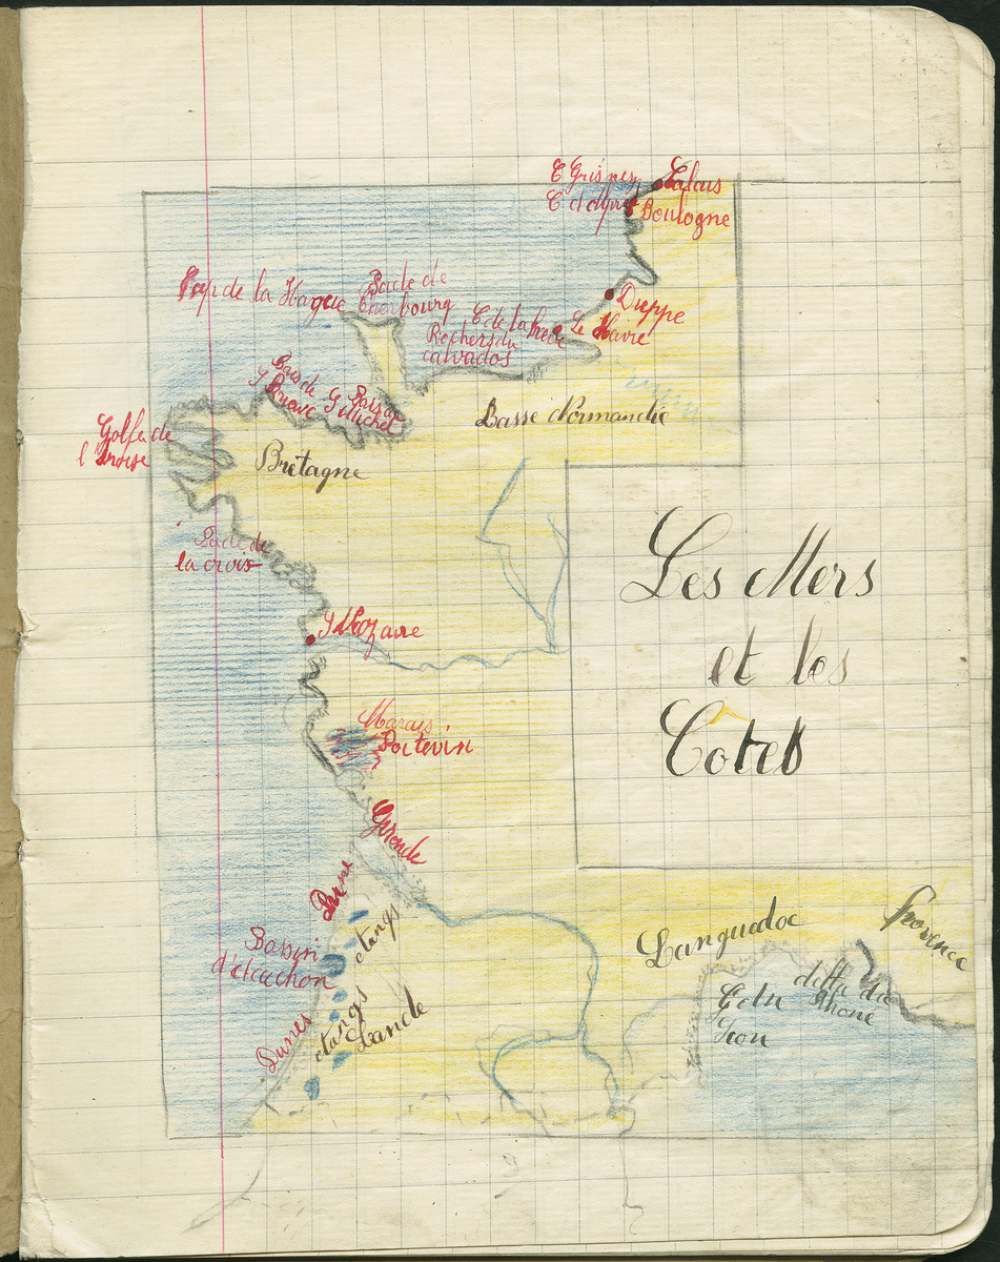 C Gris nez
Calais
C d'alpre
Boulogne
Cap de la Hague
Rade de
Cherbourg
Dieppe
C de la hève
Le Havre
Rochers du
calvados
Baie de
G Brieuc
Baie de
G Michel
Basse Normandie
Golfe de
l'Iroise
Bretagne
Les Mers
et les
Côtes
Rade de
la croix
St Nazaire
Marais
Poitevin
Gironde
Dune
etangs
Bassin
d'Arcachon
etangs
Lande
Dunes
Languedoc
Provence
delta du
Rhone
G du
Lion